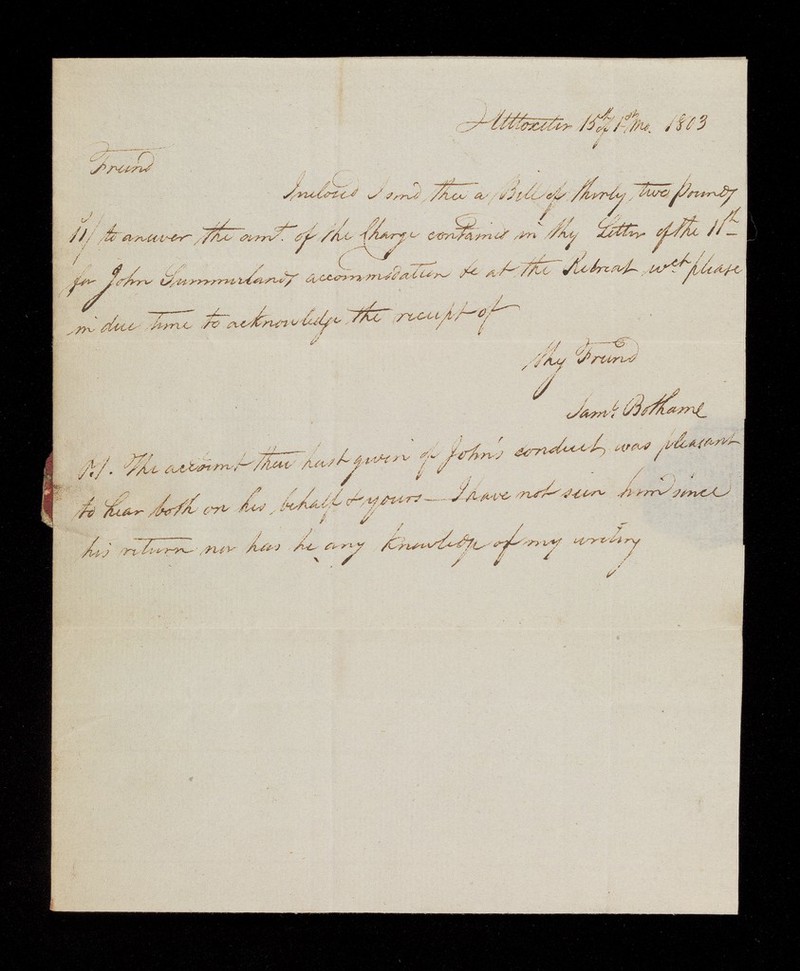 Uttoxeter 15th of 1st Mo. 1803
Friend
Inclosed I send thee a Bill of thirty two Pounds
11/ to answer the amt. of the Charge contained in thy Letter of the 11th
for John Summerlands accommodation &c at the Retreat wch please
in due time to acknowledge the receipt of
thy Friend
Saml. Botham
P.S. The account thou hast given of John's conduct was pleasant
to hear both on his behalf & yours — I have not seen him since
his return nor has he any knowledge of my writing